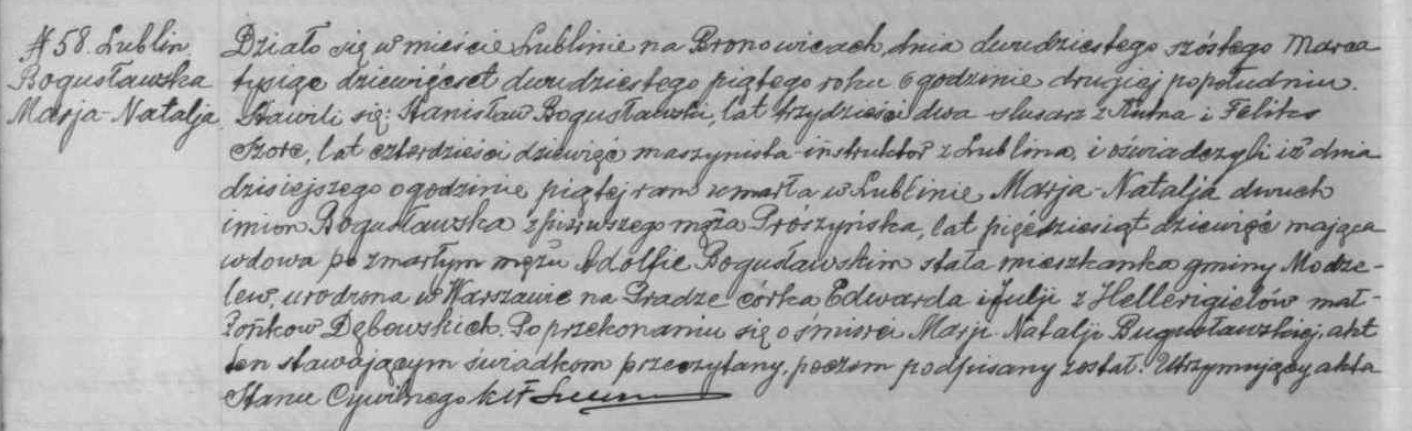 # 58. Lublin
Bogusławska
Marja-Natalja
Działo się w mieście Lublinie na Bronowicach, dnia dwudziestego szóstego Marca
tysiąc dziewięćset dwudziestego piątego roku o godzinie drugiej popołudniu.
Stawili się: Stanisław Bogusławski, lat trzydzieści dwa ślusarz z Kutna i Feliks
Szorc, lat czterdzieści dziewięć maszynista-instruktor z Lublina, i oświadczyli iż dnia
dzisiejszego o godzinie piątej rano umarła w Lublinie Marja-Natalja dwuch
imion Bogusławska z pierwszego męża Prószyńska, lat pięćdziesiąt dziewięć mająca
wdowa po zmarłym mężu Adolfie Bogusławskim stała mieszkanka gminy Modze-
lew, urodzona w Warszawie na Pradze córka Edwarda i Julji z Hellerigielów mał-
żonków Dębowskich. Po przekonaniu się o śmierci Marji-Natalji Bugusławskiej, akt
ten stawającym świadkom przeczytany, poczem podpisany został. Utrzymujący akta
Stanu Cywilnego